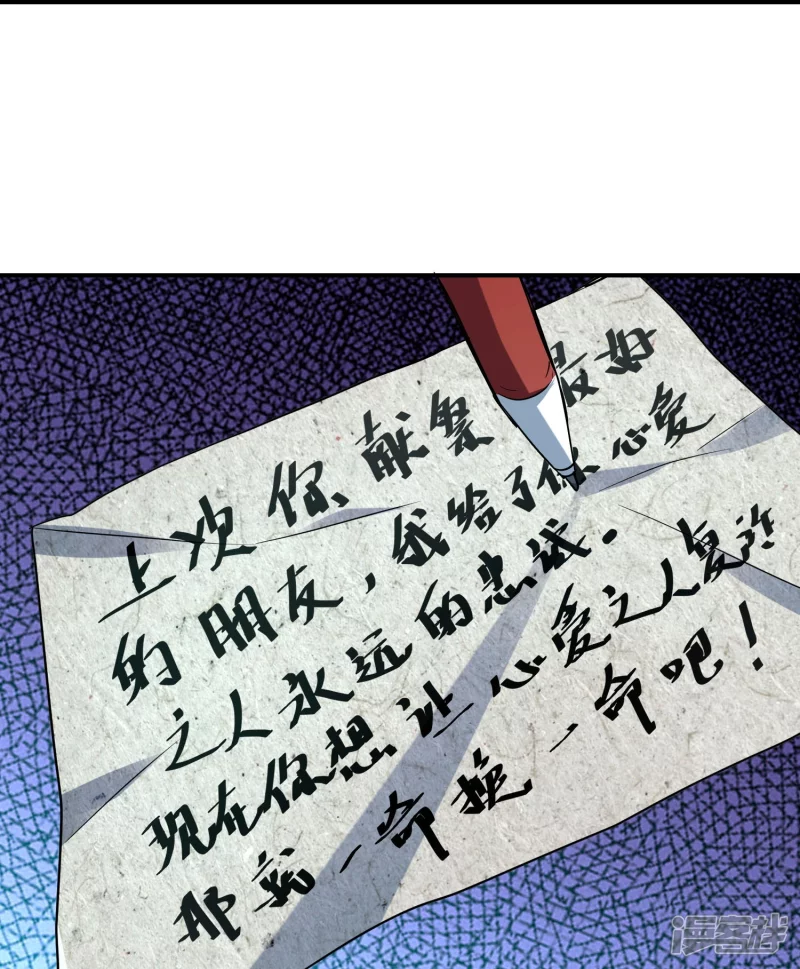 上次你献祭最好
的朋友，我给了你心爱
之人永远的忠诚。
现在你想让心爱之人复活
那就一命换一命吧！
漫客栈